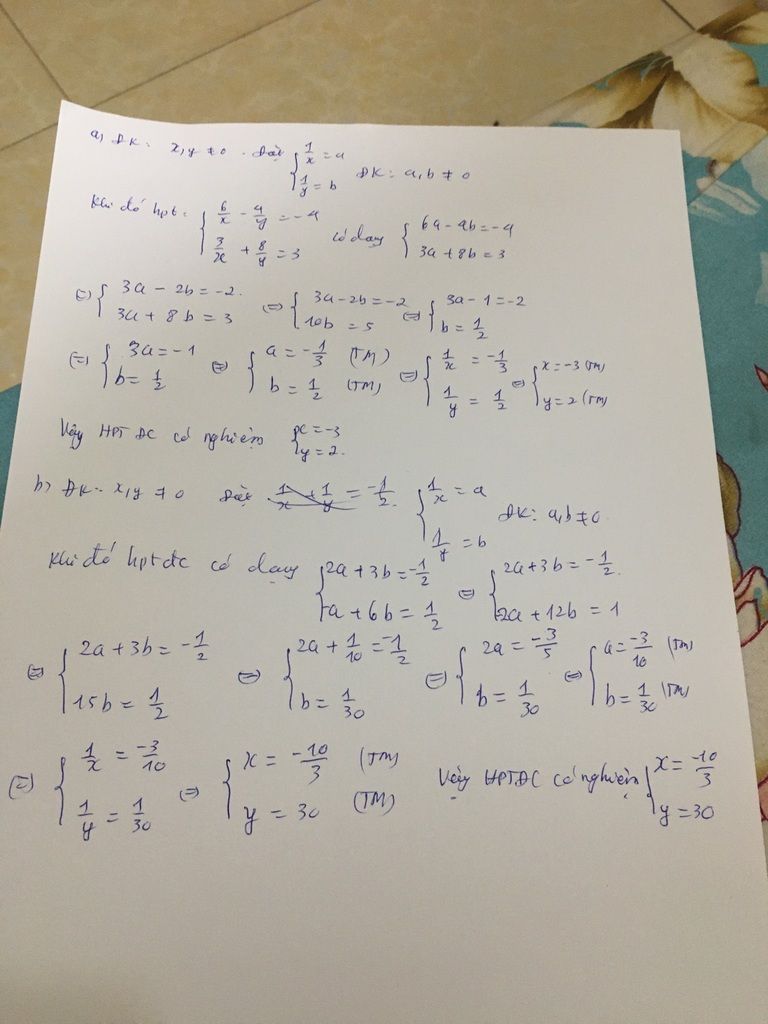 a, ĐK: x, y ≠ 0. Đặt { 1/x = a ; 1/y = b ĐK: a, b ≠ 0
Khi đó hpt: { 6/x - 4/y = -4 ; 3/x + 8/y = 3 có dạng { 6a - 4b = -4 ; 3a + 8b = 3
(=) { 3a - 2b = -2. ; 3a + 8b = 3 (=) { 3a - 2b = -2 ; 10b = 5 (=) { 3a - 1 = -2 ; b = 1/2
(=) { 3a = -1 ; b = 1/2 (=) { a = -1/3 (TM) ; b = 1/2 (TM) (=) { 1/x = -1/3 ; 1/y = 1/2 (=) { x = -3 (TM) ; y = 2 (TM)
Vậy HPT ĐC có nghiệm { x = -3 ; y = 2.
b, ĐK: x, y ≠ 0 Đặt 1/x + 1/y = -1/2. { 1/x = a ; 1/y = b ĐK: a, b ≠ 0.
Khi đó hpt đc có dạng { 2a + 3b = -1/2 ; -a + 6b = 1/2 (=) { 2a + 3b = -1/2. ; -2a + 12b = 1
(=) { 2a + 3b = -1/2 ; 15b = 1/2 (=) { 2a + 1/10 = -1/2 ; b = 1/30 (=) { 2a = -3/5 ; b = 1/30 (=) { a = -3/10 (TM) ; b = 1/30 (TM)
(=) { 1/x = -3/10 ; 1/y = 1/30 (=) { x = -10/3 (TM) ; y = 30 (TM) Vậy HPTĐC có nghiệm { x = -10/3 ; y = 30